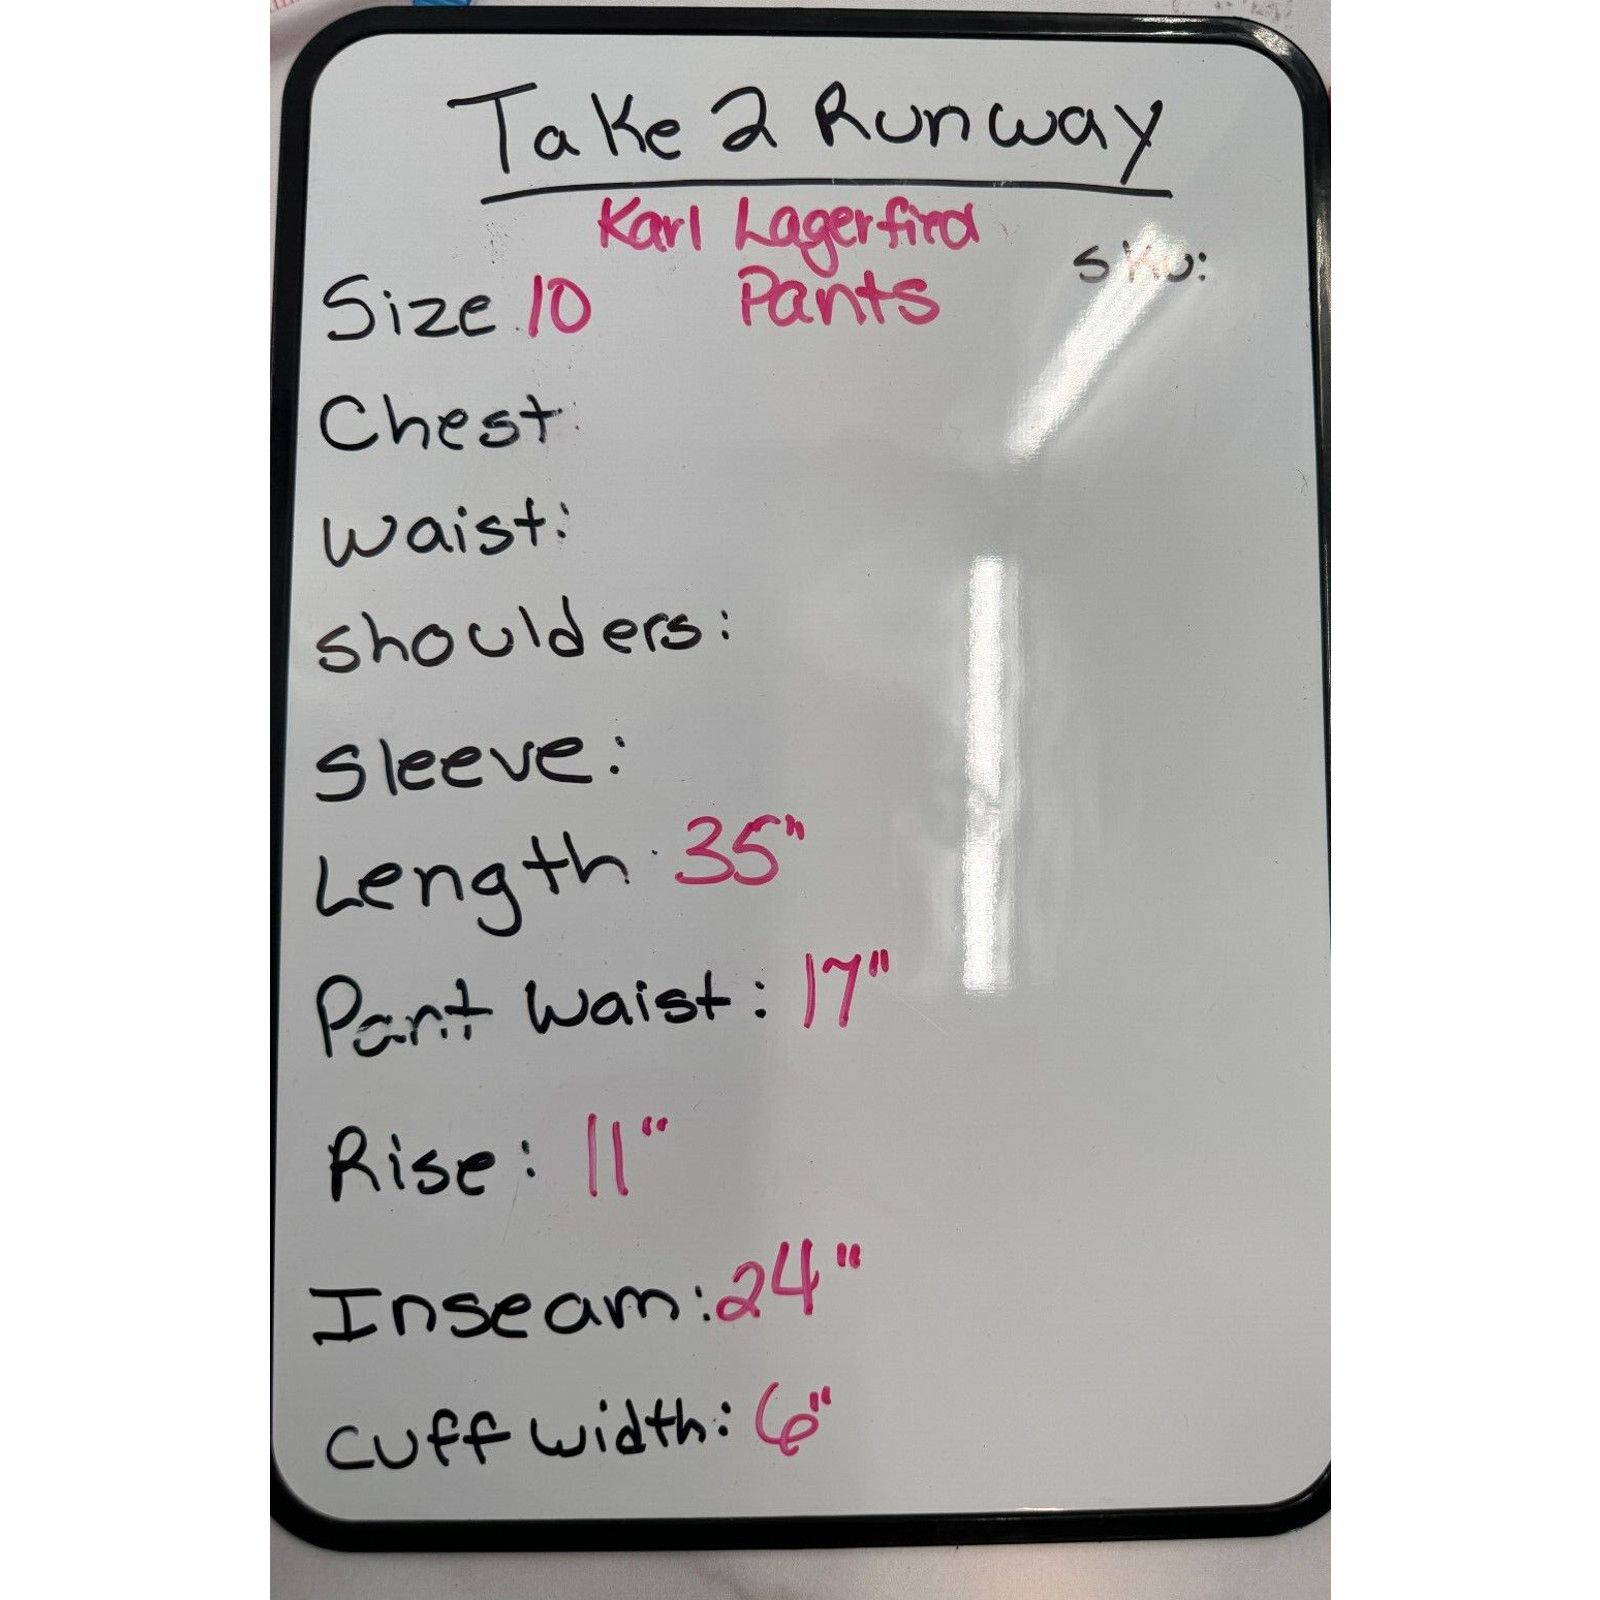 Take 2 Runway
Karl Lagerfird
SKU:
Size 10 Pants
Chest:
Waist:
Shoulders:
Sleeve:
Length: 35"
Pant Waist: 17"
Rise: 11"
Inseam: 24"
Cuff width: 6"